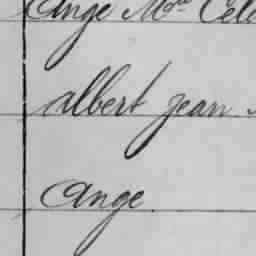 Ange Mda Cel
albert jean
Ange